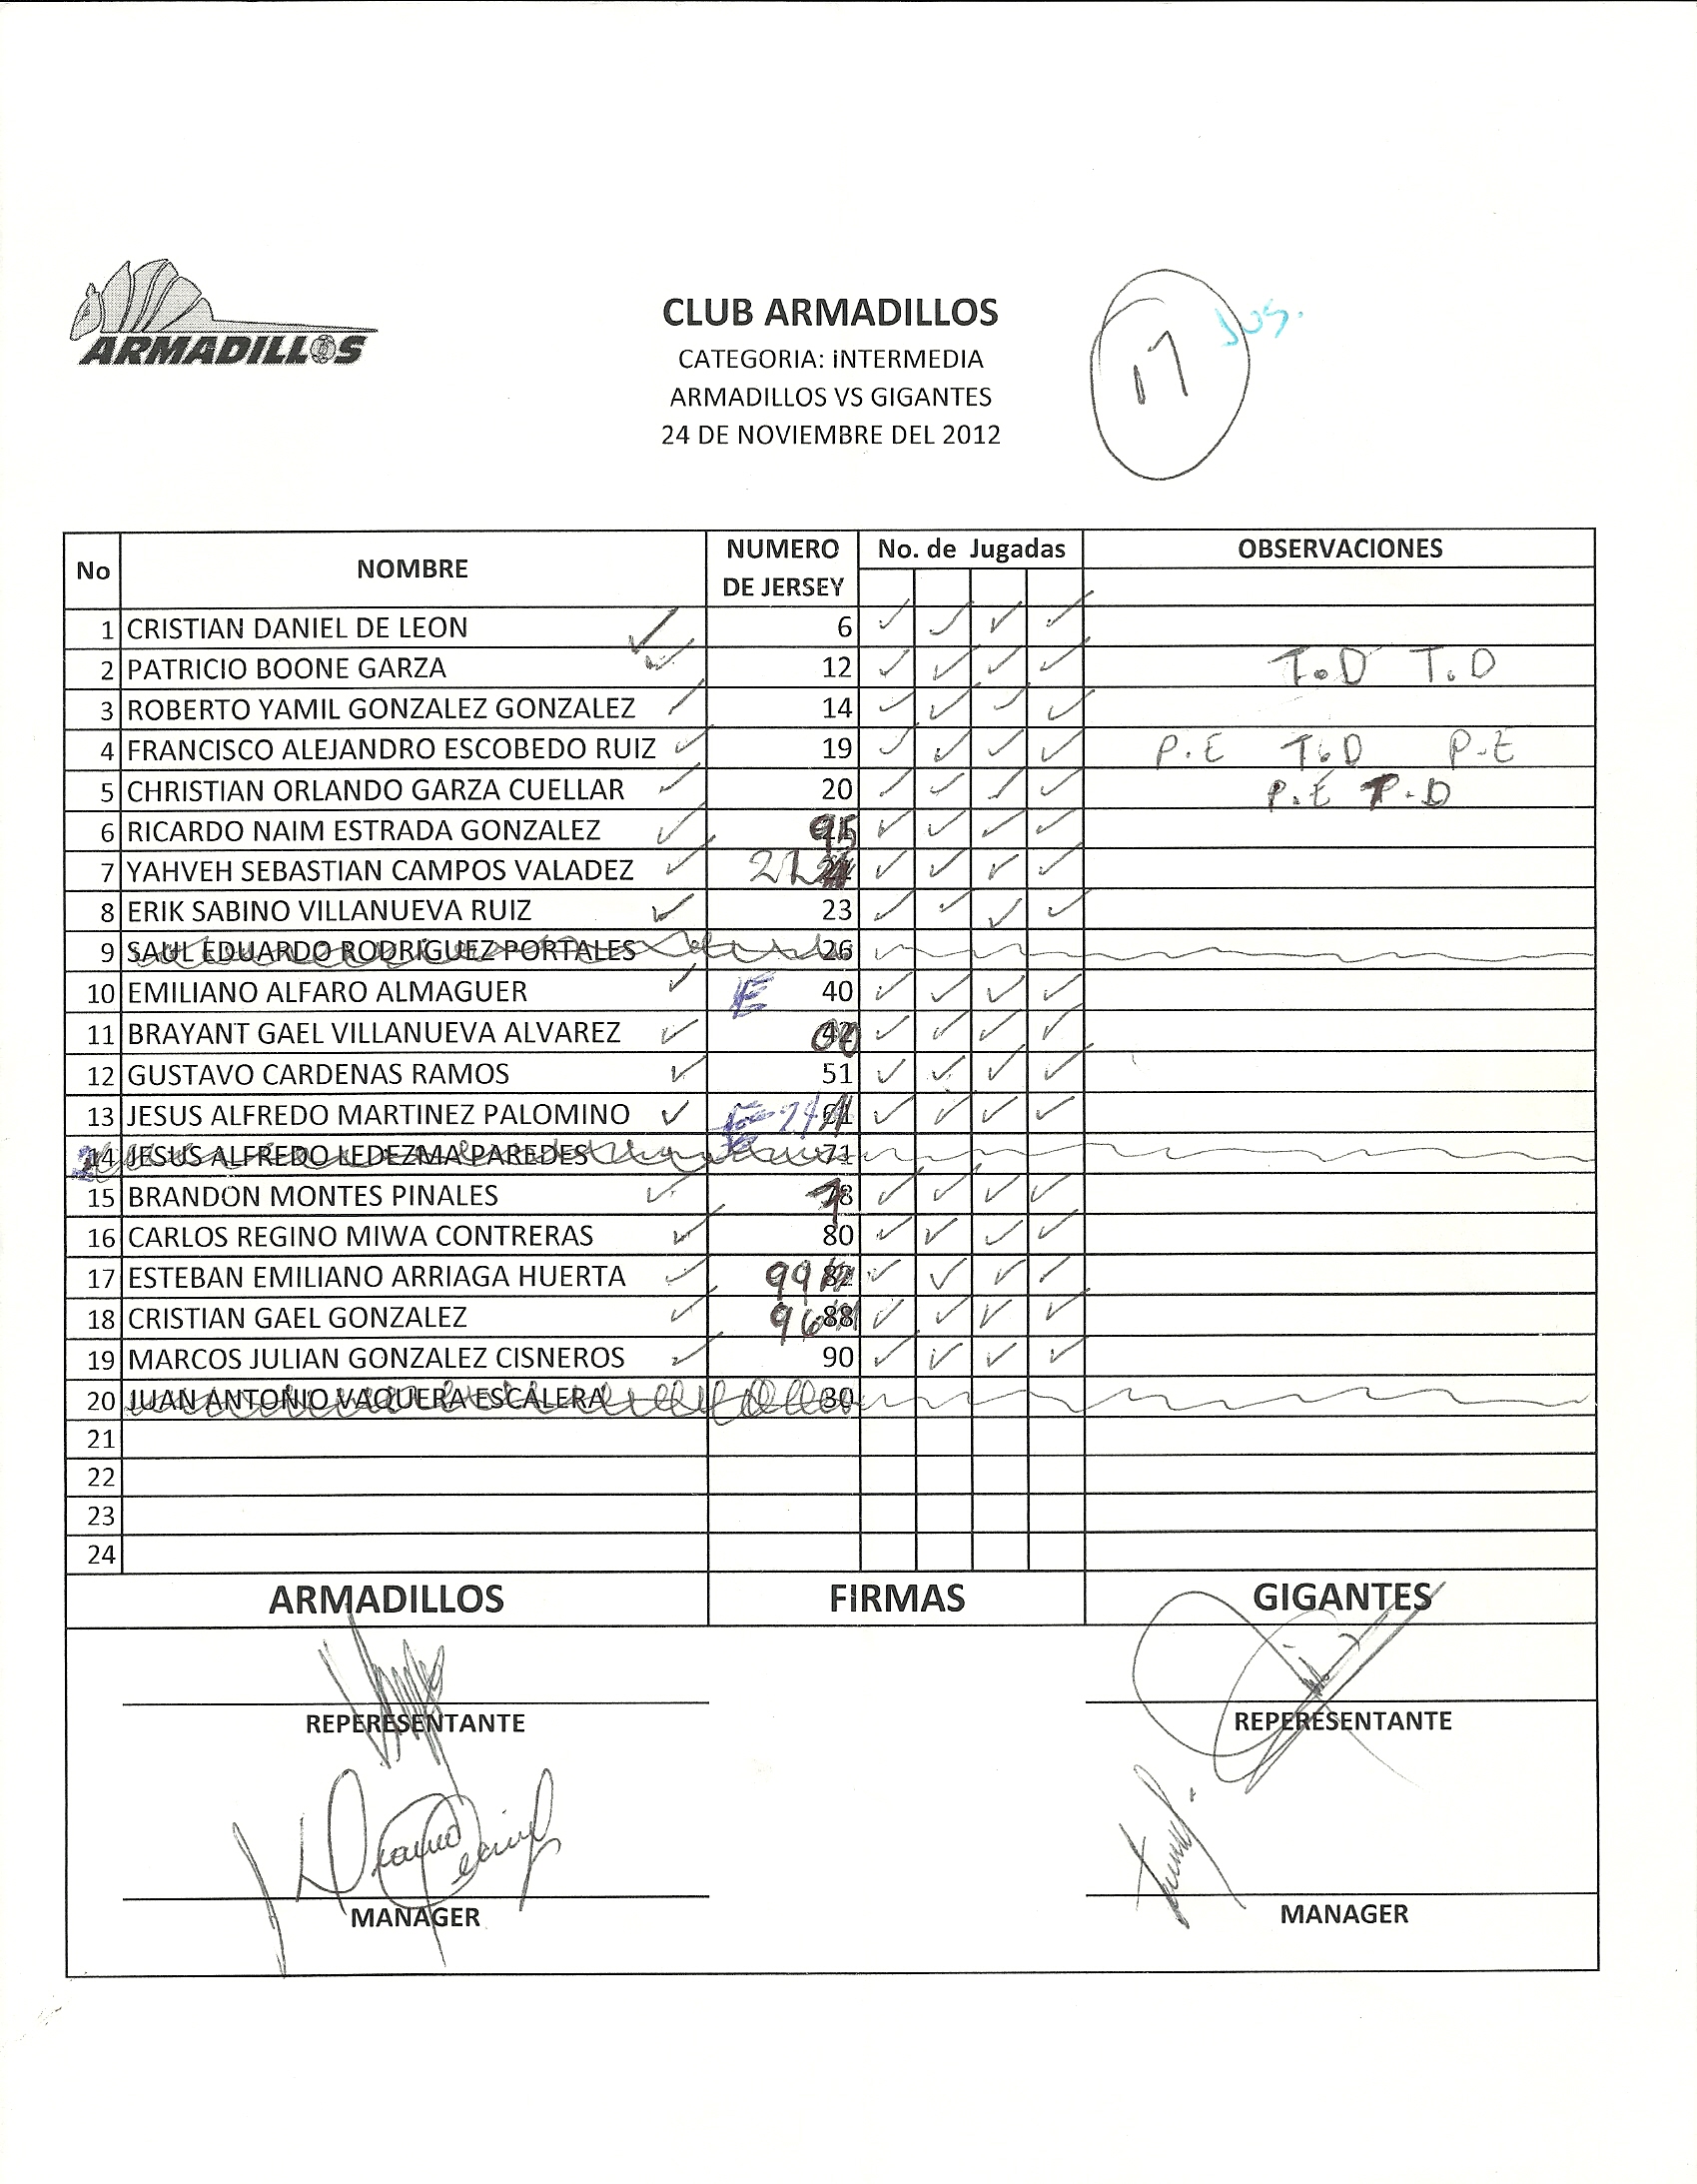 ARMADILLOS
CLUB ARMADILLOS
CATEGORIA: INTERMEDIA
ARMADILLOS VS GIGANTES
24 DE NOVIEMBRE DEL 2012
17 Jus.
No NOMBRE NUMERO DE JERSEY No. de Jugadas OBSERVACIONES
1 CRISTIAN DANIEL DE LEON 6
2 PATRICIO BOONE GARZA 12 T.D T.D
3 ROBERTO YAMIL GONZALEZ GONZALEZ 14
4 FRANCISCO ALEJANDRO ESCOBEDO RUIZ 19 P.E T.D P-E
5 CHRISTIAN ORLANDO GARZA CUELLAR 20 P.E P-D
6 RICARDO NAIM ESTRADA GONZALEZ 95
7 YAHVEH SEBASTIAN CAMPOS VALADEZ
8 ERIK SABINO VILLANUEVA RUIZ 23
9 SAUL EDUARDO RODRIGUEZ PORTALES 26
10 EMILIANO ALFARO ALMAGUER E 40
11 BRAYANT GAEL VILLANUEVA ALVAREZ
12 GUSTAVO CARDENAS RAMOS 51
13 JESUS ALFREDO MARTINEZ PALOMINO
14 JESUS ALFREDO LEDEZMA PAREDES 71
15 BRANDON MONTES PINALES
16 CARLOS REGINO MIWA CONTRERAS 80
17 ESTEBAN EMILIANO ARRIAGA HUERTA 99 82
18 CRISTIAN GAEL GONZALEZ 96 88
19 MARCOS JULIAN GONZALEZ CISNEROS 90
20 JUAN ANTONIO VAQUERA ESCALERA 30
21
22
23
24
ARMADILLOS FIRMAS GIGANTES
REPERESENTANTE REPERESENTANTE
MANAGER MANAGER